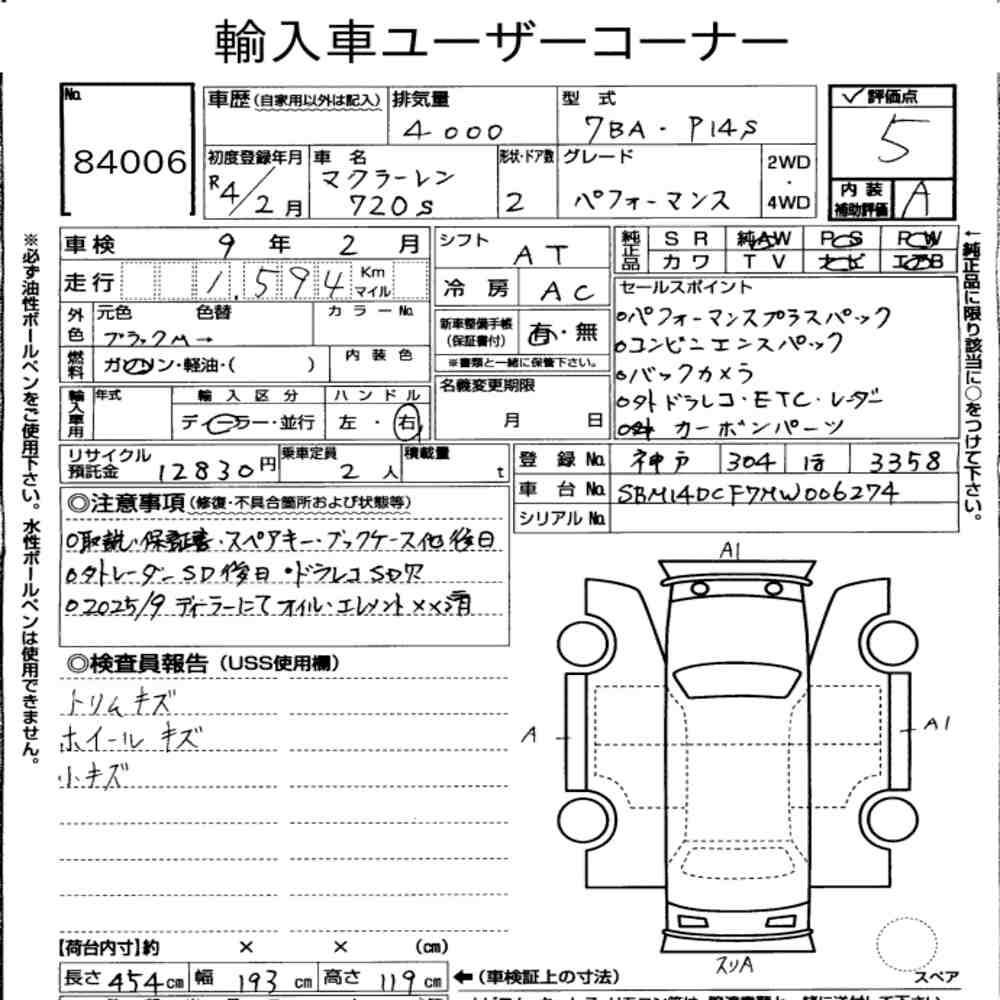 輸入車ユーザーコーナー
No. 84006
車歴(自家用以外は記入)
排気量 4000
型式 7BA・P14S
評価点 5
内装補助評価 A
初度登録年月 R4/2月
車名 マクラーレン 720S
形状・ドア数 2
グレード パフォーマンス
2WD・4WD
車検 9年 2月
走行 1,594 Km マイル
外色 元色 色替 カラーNo.
ブラックM→
燃料 ガソリン・軽油・( ) 内装色
輸入車用 年式 輸入区分 ハンドル
ディーラー・並行 左・右
リサイクル預託金 12830円 乗車定員 2人 積載量 t
シフト AT
冷房 AC
新車整備手帳(保証書付) 有・無
※書類と一緒に保管下さい。
名義変更期限
月 日
純正品 SR 純AW PS PW
カワ TV ナビ エアB
セールスポイント
oパフォーマンスプラスパック
oコンビニエンスパック
oバックカメラ
o外ドラレコ・ETC・レーダー
カーボンパーツ
登録No. 神戸 304 ほ 3358
車台No. SBM14DCF7MW006274
シリアルNo.
◎注意事項(修復・不具合箇所および状態等)
o取説・保証書・スペアキー・ブックケース他後日
o外レーダーSD後日・ドラレコSD欠
o2025/9 ディーラーにてオイル・エレメント××済
◎検査員報告(USS使用欄)
トリムキズ
ホイールキズ
小キズ
A1
A
A1
スリA
スペア
【荷台内寸】約 × × (cm)
長さ 454cm 幅 193cm 高さ 119cm
←(車検証上の寸法)
※必ず油性ボールペンをご使用下さい。水性ボールペンは使用できません。
←純正品に限り該当に○をつけて下さい。